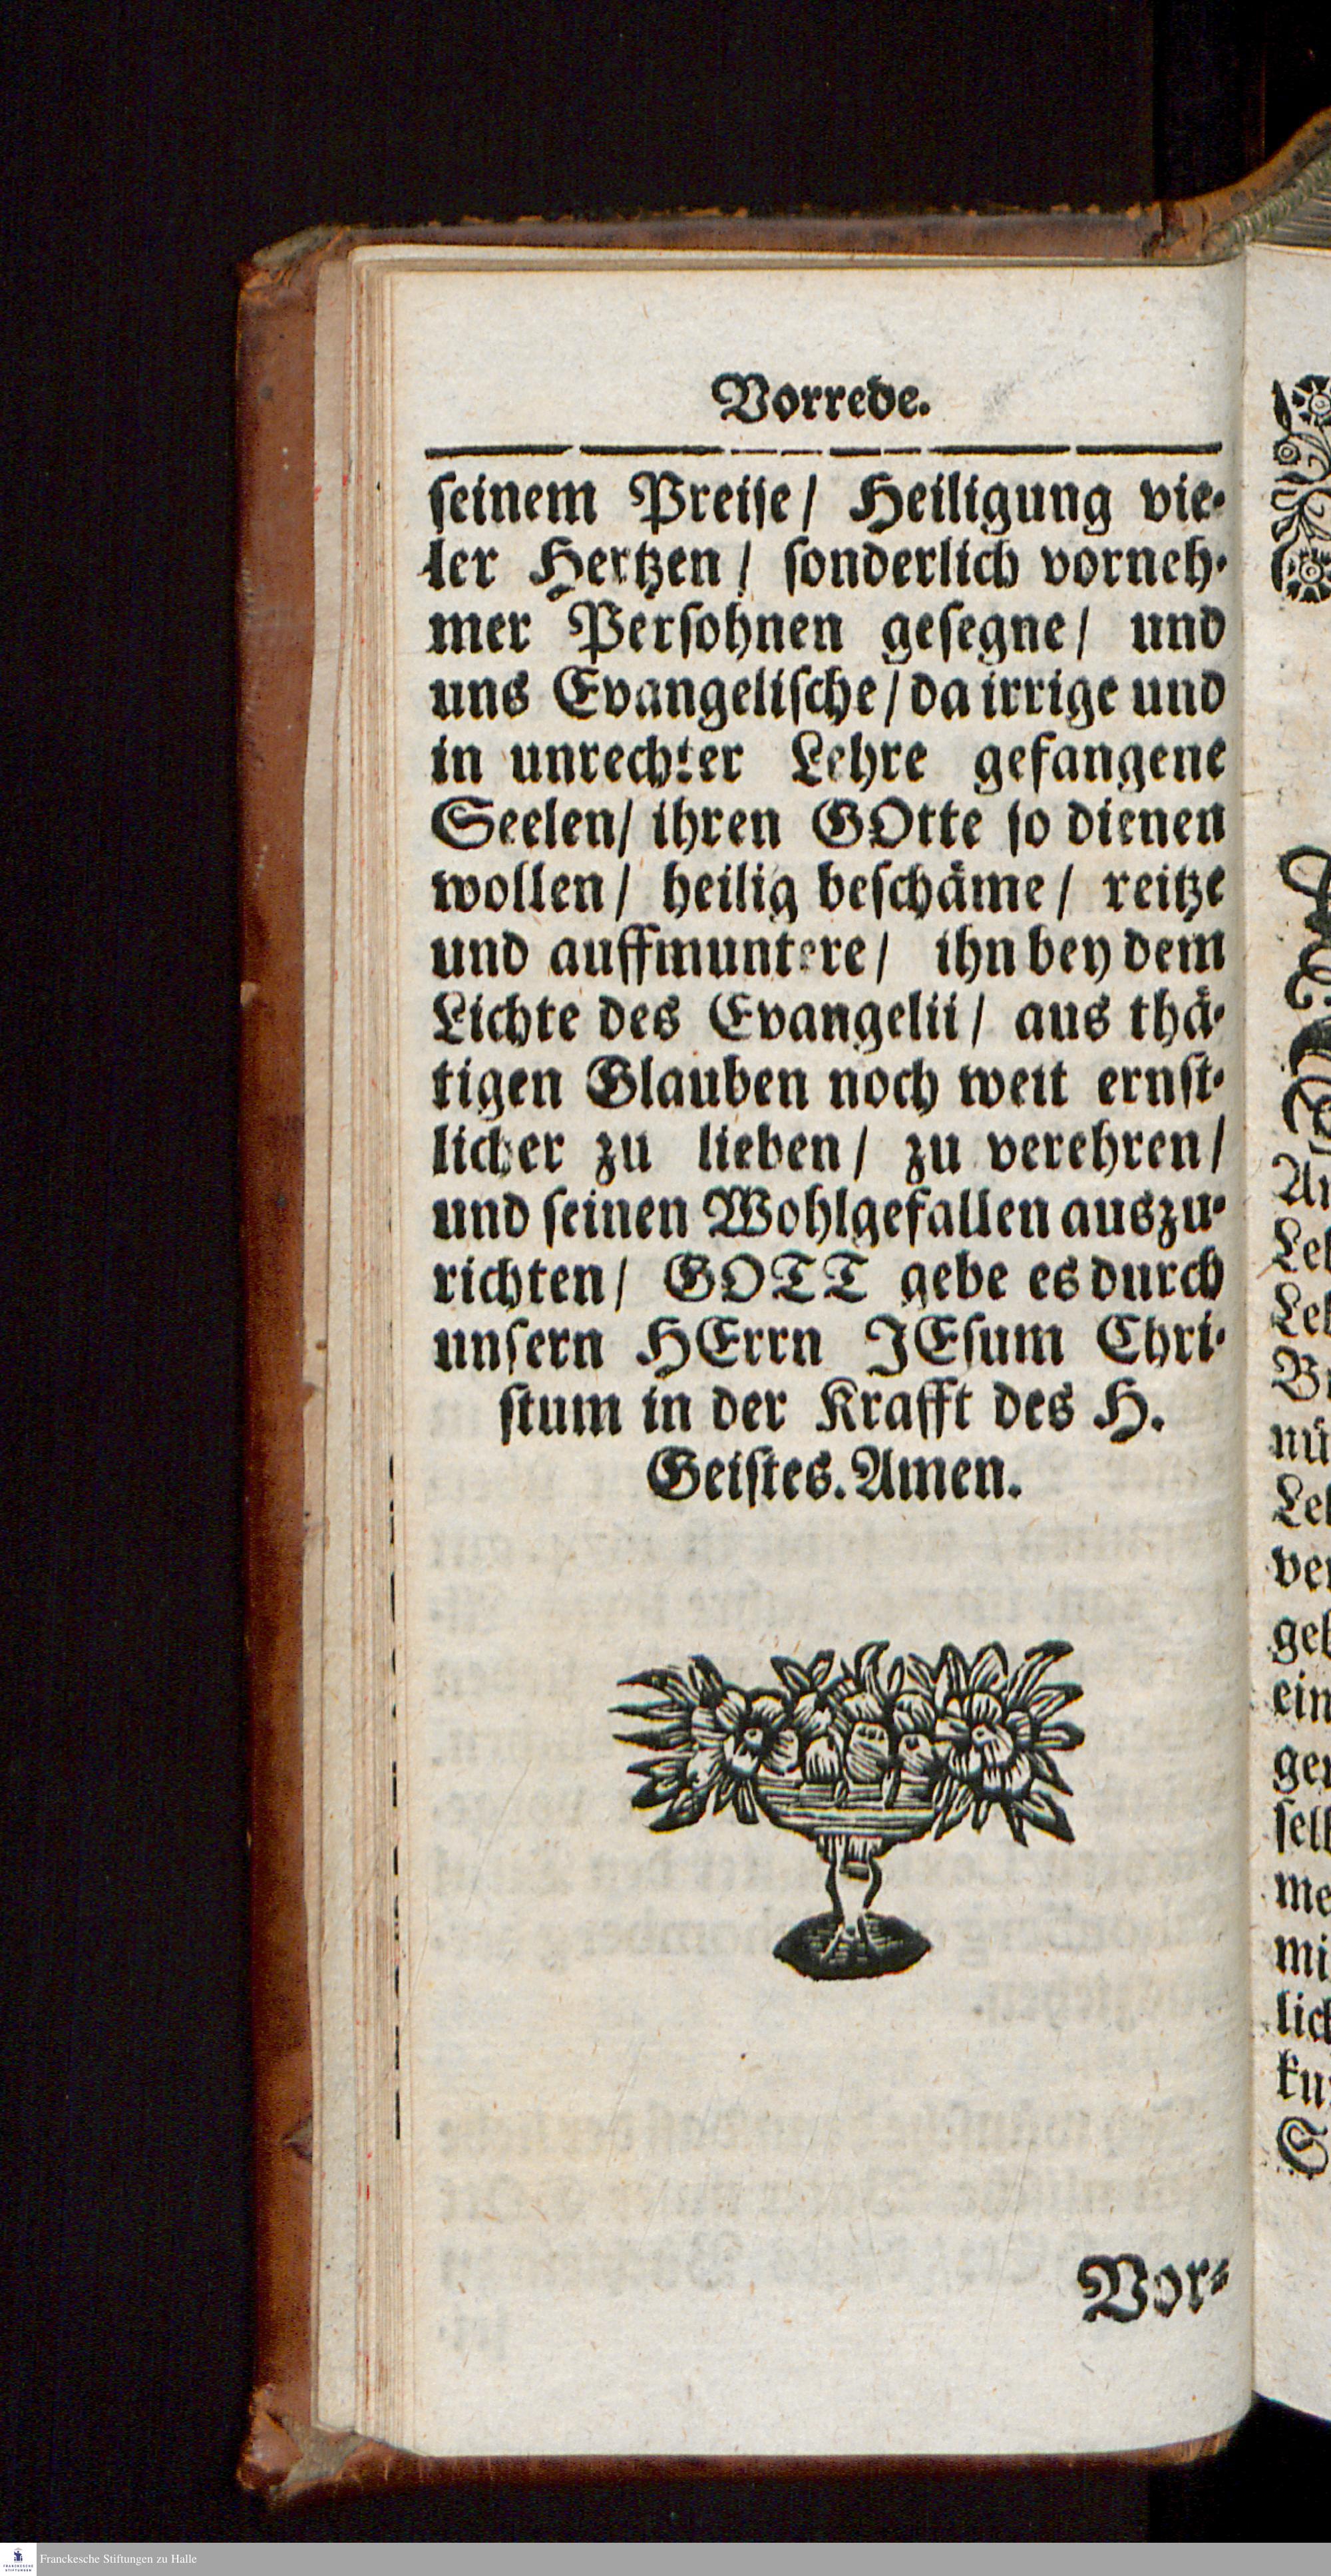 Vorrede.
ſeinem Preiſe/ Heiligung vie-
ler Hertzen/ ſonderlich vorneh-
mer Perſohnen geſegne/ und
uns Evangeliſche/ da irrige und
in unrechter Lehre gefangene
Seelen/ ihren GOtte ſo dienen
wollen/ heilig beſchäme/ reitze
und auffmuntere/ ihn bey dem
Lichte des Evangelii/ aus thä-
tigen Glauben noch weit ernſt-
licher zu lieben/ zu verehren/
und ſeinen Wohlgefallen auszu-
richten/ GOTT gebe es durch
unſern HErrn JEſum Chri-
ſtum in der Krafft des H.
Geiſtes. Amen.
Vor-
Franckesche Stiftungen zu Halle